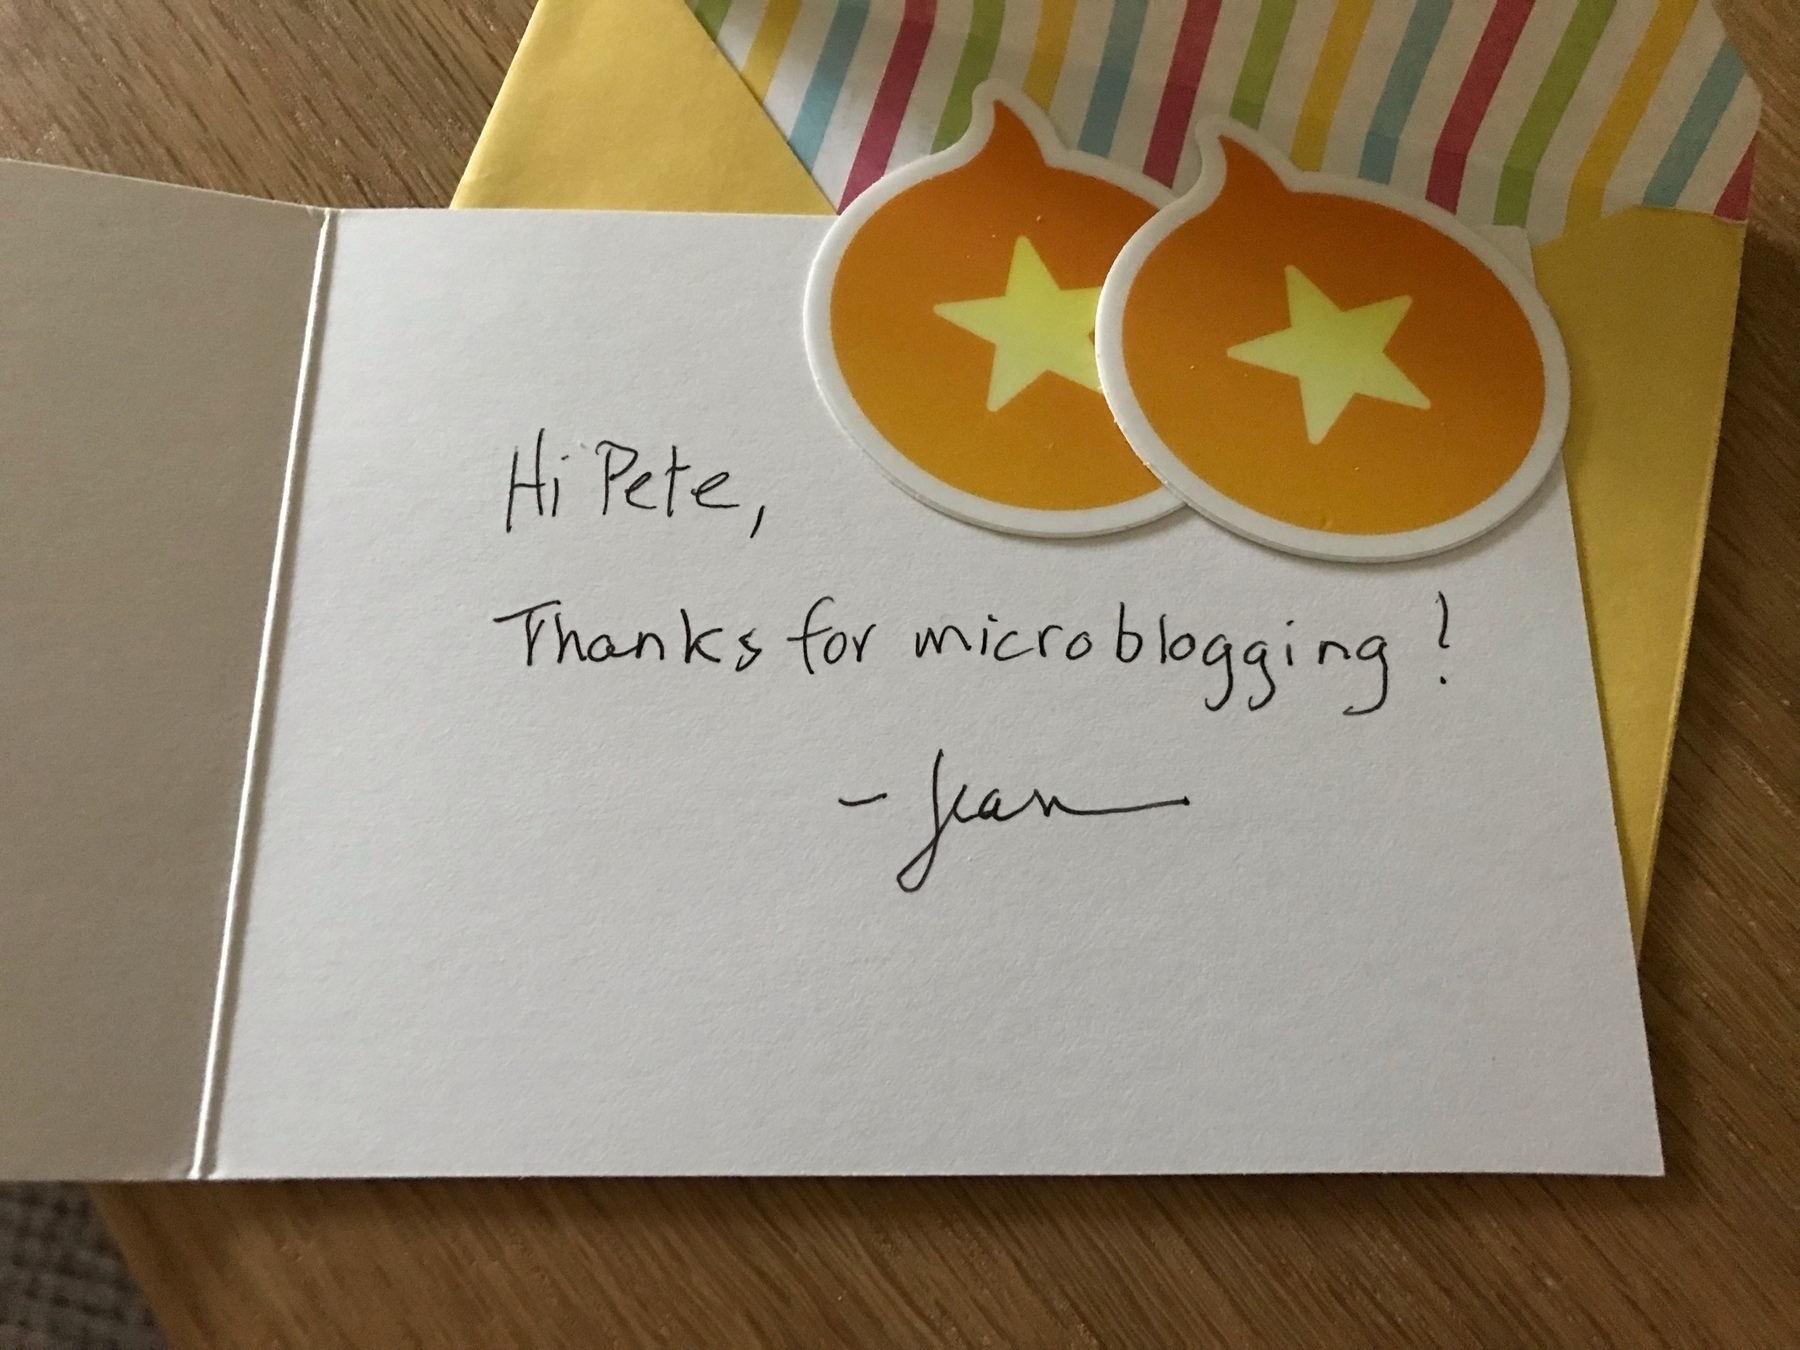 Hi Pete,
Thanks for microblogging!
- Jean